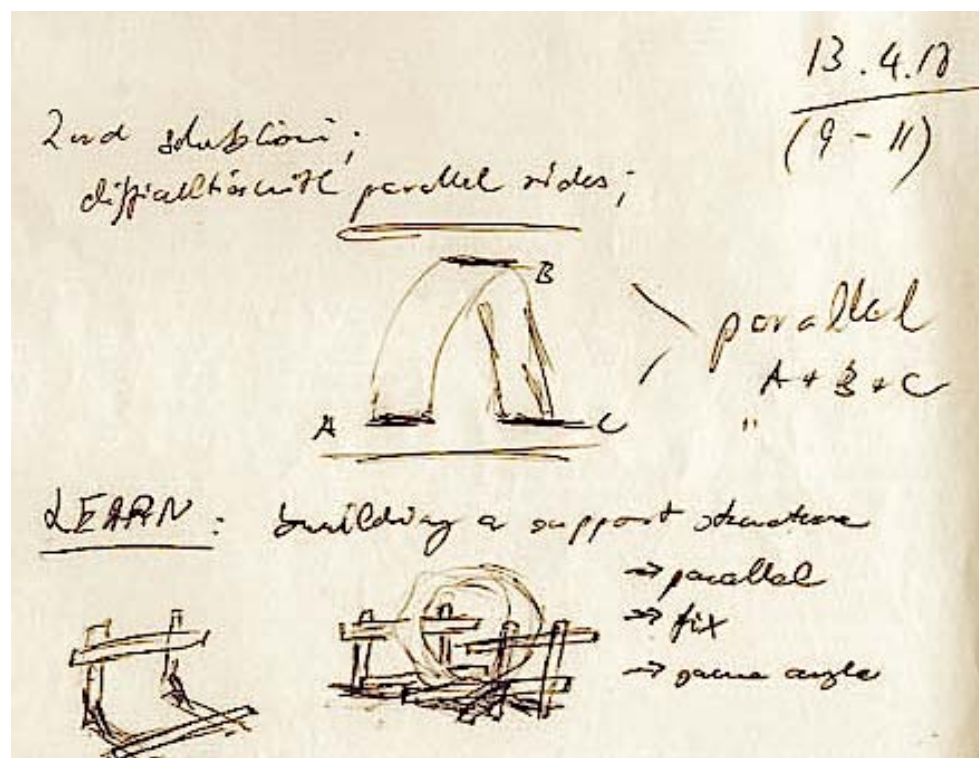 13.4.18
(9 - 11)
2nd solution;
difficulties with parallel sides;
B
parallel
A + B + C
"
A
C
LEARN: building a support structure
→ parallel
→ fix
→ same angle